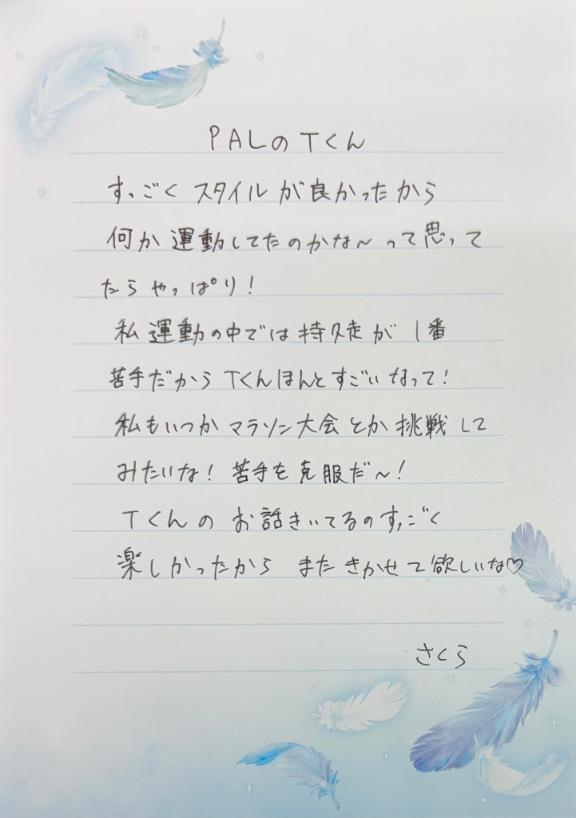 PALのTくん
すっごくスタイルが良かったから
何か運動してたのかな〜って思って
たらやっぱり!
私運動の中では持久走が1番
苦手だからTくんほんとすごいなって!
私もいつかマラソン大会とか挑戦して
みたいな!苦手を克服だ〜!
Tくんのお話きいてるのすっごく
楽しかったから またきかせて欲しいな♡
さくら